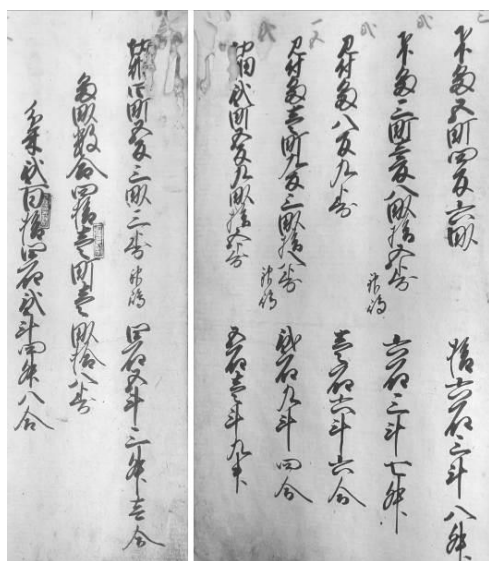 下畠五町四反六畝 拾六石三斗八升
下畠三町壱反八畝拾五歩 六石三斗七升
見付畠八反九歩 壱石六斗六合
見付畠壱町九反三畝拾八歩 弐石九斗四合
弐町五反九畝拾五歩 五石壱斗九升
四町五反三畝三歩 四石五斗三升壱合
畠畝数合四拾壱町壱畝拾八歩
分米弐百拾四石弐斗四升八合